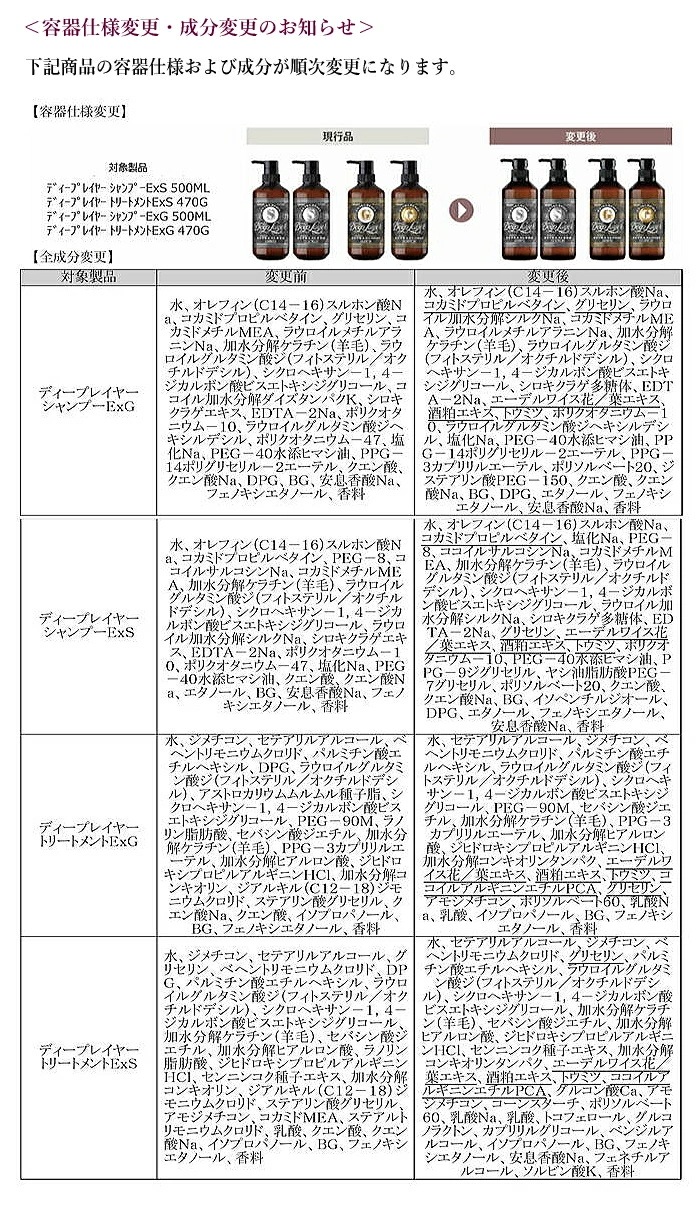 ＜容器仕様変更・成分変更のお知らせ＞
下記商品の容器仕様および成分が順次変更になります。
【容器仕様変更】
現行品
変更後
対象製品
ﾃﾞｨｰﾌﾟﾚｲﾔｰ ｼｬﾝﾌﾟｰExS 500ML
ﾃﾞｨｰﾌﾟﾚｲﾔｰ ﾄﾘｰﾄﾒﾝﾄExS 470G
ﾃﾞｨｰﾌﾟﾚｲﾔｰ ｼｬﾝﾌﾟｰExG 500ML
ﾃﾞｨｰﾌﾟﾚｲﾔｰ ﾄﾘｰﾄﾒﾝﾄExG 470G
S
S
G
G
S
S
G
G
【全成分変更】
対象製品
変更前
変更後
ディープレイヤー
シャンプーExG
水、オレフィン(C14－16)スルホン酸N
a、コカミドプロピルベタイン、グリセリン、コ
カミドメチルMEA、ラウロイルメチルアラ
ニンNa、加水分解ケラチン(羊毛)、ラウ
ロイルグルタミン酸ジ(フィトステリル／オク
チルドデシル)、シクロヘキサン－1, 4－
ジカルボン酸ビスエトキシジグリコール、コ
コイル加水分解ダイズタンパクK、シロキ
クラゲエキス、EDTA－2Na、ポリクオタ
ニウム－10、ラウロイルグルタミン酸ジヘ
キシルデシル、ポリクオタニウム－47、塩
化Na、PEG－40水添ヒマシ油、PPG－
14ポリグリセリル－2エーテル、クエン酸、
クエン酸Na、DPG、BG、安息香酸Na、
フェノキシエタノール、香料
水、オレフィン(C14－16)スルホン酸Na、
コカミドプロピルベタイン、グリセリン、ラウロ
イル加水分解シルクNa、コカミドメチルME
A、ラウロイルメチルアラニンNa、加水分解
ケラチン(羊毛)、ラウロイルグルタミン酸ジ
(フィトステリル／オクチルドデシル)、シクロ
ヘキサン－1, 4－ジカルボン酸ビスエトキ
シジグリコール、シロキクラゲ多糖体、EDT
A－2Na、エーデルワイス花／葉エキス、
酒粕エキス、トウミツ、ポリクオタニウム－1
0、ラウロイルグルタミン酸ジヘキシルデシ
ル、塩化Na、PEG－40水添ヒマシ油、PP
G－14ポリグリセリル－2エーテル、PPG－
3カプリリルエーテル、ポリソルベート20、ジ
ステアリン酸PEG－150、クエン酸、クエン
酸Na、BG、DPG、エタノール、フェノキシ
エタノール、安息香酸Na、香料
ディープレイヤー
シャンプーExS
水、オレフィン(C14－16)スルホン酸N
a、コカミドプロピルベタイン、PEG－8、コ
コイルサルコシンNa、コカミドメチルME
A、加水分解ケラチン(羊毛)、ラウロイル
グルタミン酸ジ(フィトステリル／オクチル
ドデシル)、シクロヘキサン－1, 4－ジカ
ルボン酸ビスエトキシジグリコール、ラウロ
イル加水分解シルクNa、シロキクラゲエキ
ス、EDTA－2Na、ポリクオタニウム－1
0、ポリクオタニウム－47、塩化Na、PEG
－40水添ヒマシ油、クエン酸、クエン酸N
a、エタノール、BG、安息香酸Na、フェノ
キシエタノール、香料
水、オレフィン(C14－16)スルホン酸Na、
コカミドプロピルベタイン、塩化Na、PEG－
8、ココイルサルコシンNa、コカミドメチルM
EA、加水分解ケラチン(羊毛)、ラウロイル
グルタミン酸ジ(フィトステリル／オクチルド
デシル)、シクロヘキサン－1, 4－ジカルボ
ン酸ビスエトキシジグリコール、ラウロイル加
水分解シルクNa、シロキクラゲ多糖体、ED
TA－2Na、グリセリン、エーデルワイス花
／葉エキス、酒粕エキス、トウミツ、ポリクオ
タニウム－10、PEG－40水添ヒマシ油、P
PG－9ジグリセリル、ヤシ油脂肪酸PEG－
7グリセリル、ポリソルベート20、クエン酸、
クエン酸Na、BG、イソペンチルジオール、
DPG、エタノール、フェノキシエタノール、
安息香酸Na、香料
ディープレイヤー
トリートメントExG
水、ジメチコン、セテアリルアルコール、ベ
ヘントリモニウムクロリド、パルミチン酸エ
チルヘキシル、DPG、ラウロイルグルタミ
ン酸ジ(フィトステリル／オクチルドデシ
ル)、アストロカリウムムルムル種子脂、シ
クロヘキサン－1, 4－ジカルボン酸ビス
エトキシジグリコール、PEG－90M、ラノ
リン脂肪酸、セバシン酸ジエチル、加水分
解ケラチン(羊毛)、PPG－3カプリリルエ
ーテル、加水分解ヒアルロン酸、ジヒドロ
キシプロピルアルギニンHCl、加水分解コ
ンキオリン、ジアルキル(C12－18)ジモ
ニウムクロリド、ステアリン酸グリセリル、ク
エン酸Na、クエン酸、イソプロパノール、
BG、フェノキシエタノール、香料
水、セテアリルアルコール、ジメチコン、ベ
ヘントリモニウムクロリド、パルミチン酸エチ
ルヘキシル、ラウロイルグルタミン酸ジ(フィ
トステリル／オクチルドデシル)、シクロヘキ
サン－1, 4－ジカルボン酸ビスエトキシジ
グリコール、PEG－90M、セバシン酸ジエ
チル、加水分解ケラチン(羊毛)、PPG－3
カプリリルエーテル、加水分解ヒアルロン
酸、ジヒドロキシプロピルアルギニンHCl、
加水分解コンキオリンタンパク、エーデルワ
イス花／葉エキス、酒粕エキス、トウミツ、コ
コイルアルギニンエチルPCA、グリセリン、
アモジメチコン、ポリソルベート60、乳酸N
a、乳酸、イソプロパノール、BG、フェノキシ
エタノール、香料
ディープレイヤー
トリートメントExS
水、ジメチコン、セテアリルアルコール、グ
リセリン、ベヘントリモニウムクロリド、DP
G、パルミチン酸エチルヘキシル、ラウロ
イルグルタミン酸ジ(フィトステリル／オク
チルドデシル)、シクロヘキサン－1, 4－
ジカルボン酸ビスエトキシジグリコール、
加水分解ケラチン(羊毛)、セバシン酸ジ
エチル、加水分解ヒアルロン酸、ラノリン
脂肪酸、ジヒドロキシプロピルアルギニン
HCl、センニンコク種子エキス、加水分解
コンキオリン、ジアルキル(C12－18)ジ
モニウムクロリド、ステアリン酸グリセリル、
アモジメチコン、コカミドMEA、ステアルト
リモニウムクロリド、乳酸、クエン酸、クエン
酸Na、イソプロパノール、BG、フェノキシ
エタノール、香料
水、セテアリルアルコール、ジメチコン、ベ
ヘントリモニウムクロリド、グリセリン、パルミ
チン酸エチルヘキシル、ラウロイルグルタミ
ン酸ジ(フィトステリル／オクチルドデシ
ル)、シクロヘキサン－1, 4－ジカルボン酸
ビスエトキシジグリコール、加水分解ケラチ
ン(羊毛)、セバシン酸ジエチル、加水分解
ヒアルロン酸、ジヒドロキシプロピルアルギニ
ンHCl、センニンコク種子エキス、加水分解
コンキオリンタンパク、エーデルワイス花／
葉エキス、酒粕エキス、トウミツ、ココイルア
ルギニンエチルPCA、グルコン酸Ca、アモ
ジメチコン、コーンスターチ、ポリソルベート
60、乳酸Na、乳酸、トコフェロール、グルコ
ノラクトン、カプリリルグリコール、ベンジルア
ルコール、イソプロパノール、BG、フェノキ
シエタノール、安息香酸Na、フェネチルア
ルコール、ソルビン酸K、香料